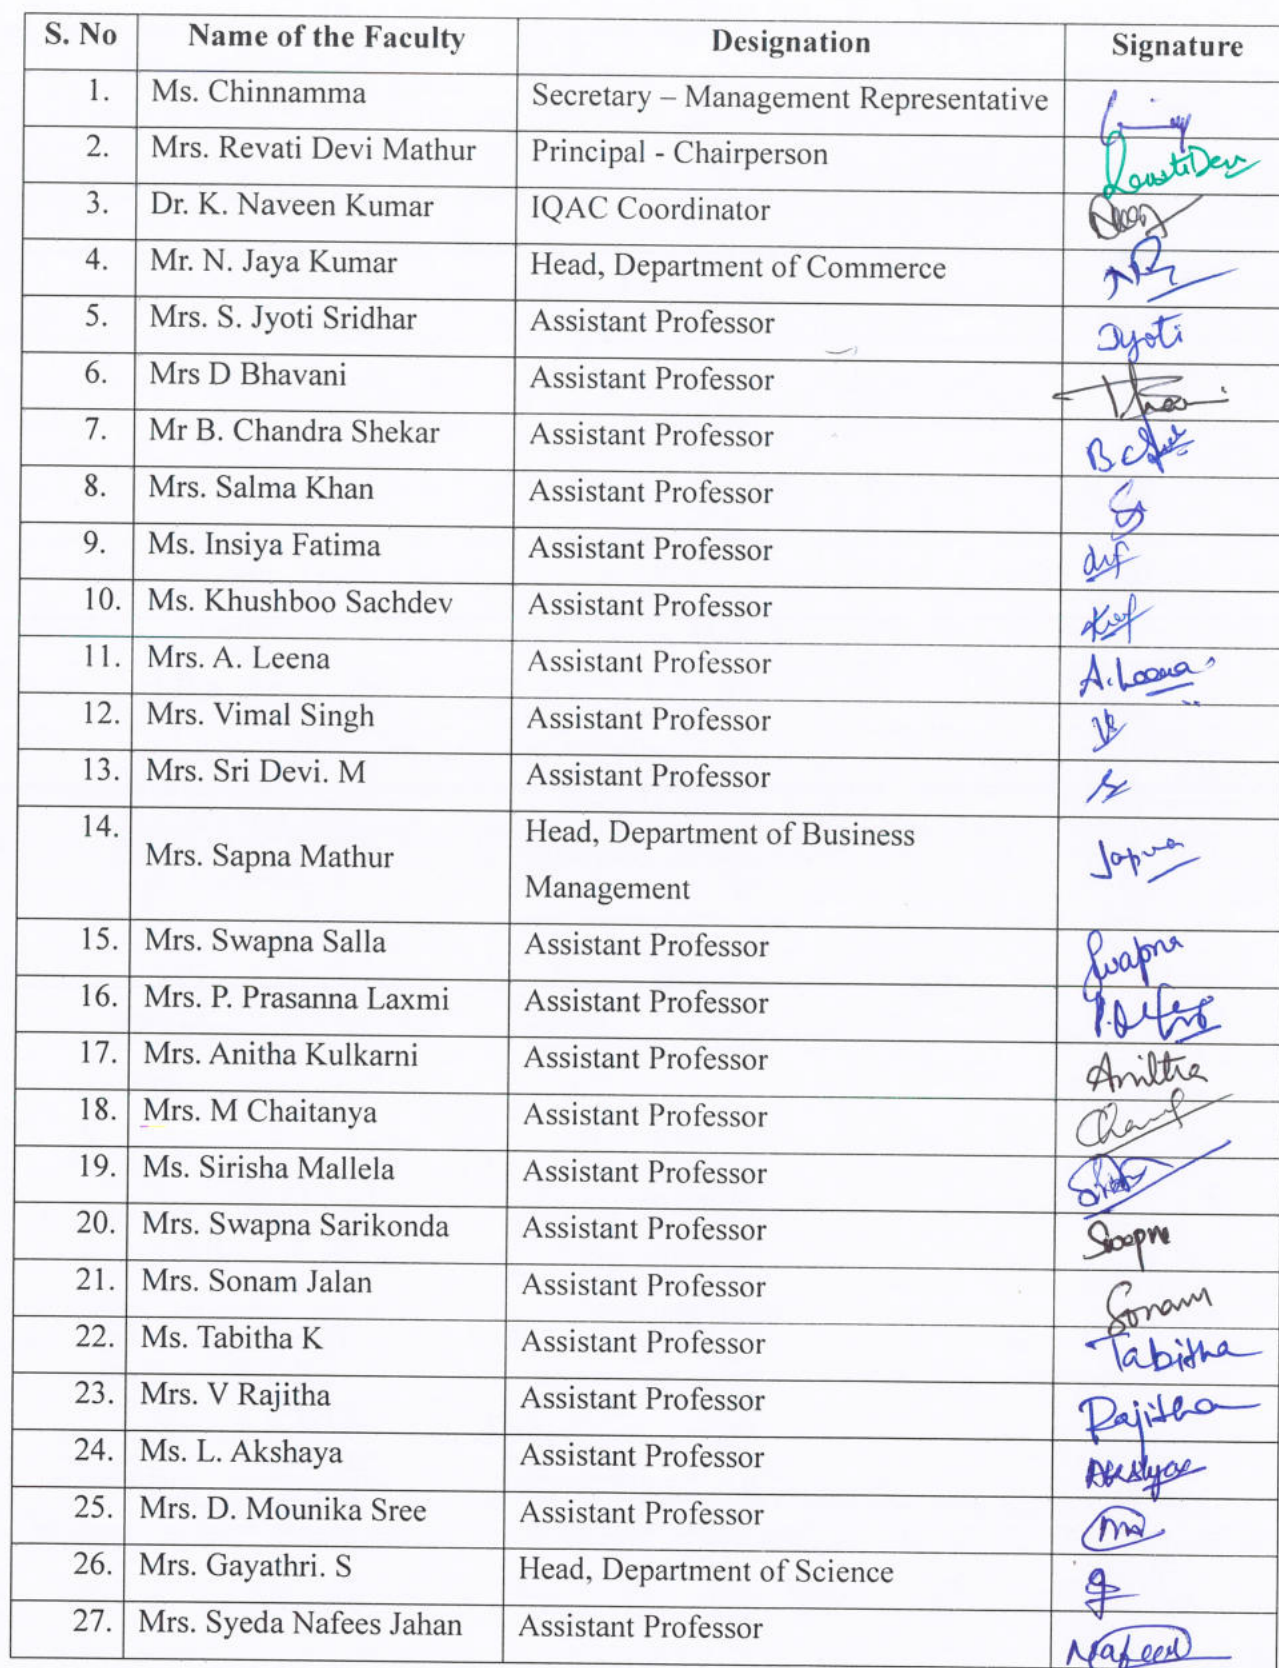 S. No Name of the Faculty Designation Signature
1. Ms. Chinnamma Secretary – Management Representative
2. Mrs. Revati Devi Mathur Principal - Chairperson RevatiDevi
3. Dr. K. Naveen Kumar IQAC Coordinator
4. Mr. N. Jaya Kumar Head, Department of Commerce
5. Mrs. S. Jyoti Sridhar Assistant Professor Jyoti
6. Mrs D Bhavani Assistant Professor
7. Mr B. Chandra Shekar Assistant Professor
8. Mrs. Salma Khan Assistant Professor
9. Ms. Insiya Fatima Assistant Professor
10. Ms. Khushboo Sachdev Assistant Professor
11. Mrs. A. Leena Assistant Professor A. Leena
12. Mrs. Vimal Singh Assistant Professor
13. Mrs. Sri Devi. M Assistant Professor
14. Mrs. Sapna Mathur Head, Department of Business
Management Sapna
15. Mrs. Swapna Salla Assistant Professor Swapna
16. Mrs. P. Prasanna Laxmi Assistant Professor
17. Mrs. Anitha Kulkarni Assistant Professor Anitha
18. Mrs. M Chaitanya Assistant Professor
19. Ms. Sirisha Mallela Assistant Professor
20. Mrs. Swapna Sarikonda Assistant Professor Swapna
21. Mrs. Sonam Jalan Assistant Professor Sonam
22. Ms. Tabitha K Assistant Professor Tabitha
23. Mrs. V Rajitha Assistant Professor Rajitha
24. Ms. L. Akshaya Assistant Professor Akshaya
25. Mrs. D. Mounika Sree Assistant Professor
26. Mrs. Gayathri. S Head, Department of Science
27. Mrs. Syeda Nafees Jahan Assistant Professor Nafees